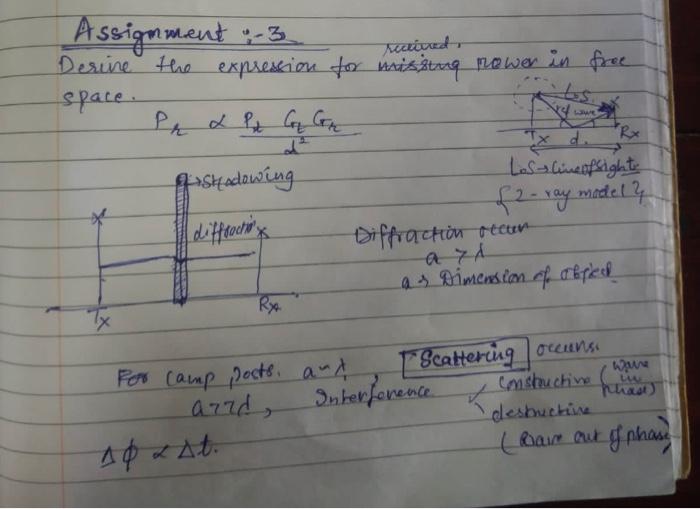 Assignment :- 3
Derive the expression for received power in free
space.
Pr ∝ Pt Gt Gr / d²
LoS
ray wave
Tx d. Rx
LoS → Line of sight
{2-ray model}
→ Shadowing
diffraction
Tx Rx
Diffraction occur
a > λ
a → Dimension of object
For lamp posts. a ~ λ, Scattering occurs.
a >> λ, Interference
Constructive (wave in phase)
destructive
(Wave out of phase)
Δϕ ∝ Δt.